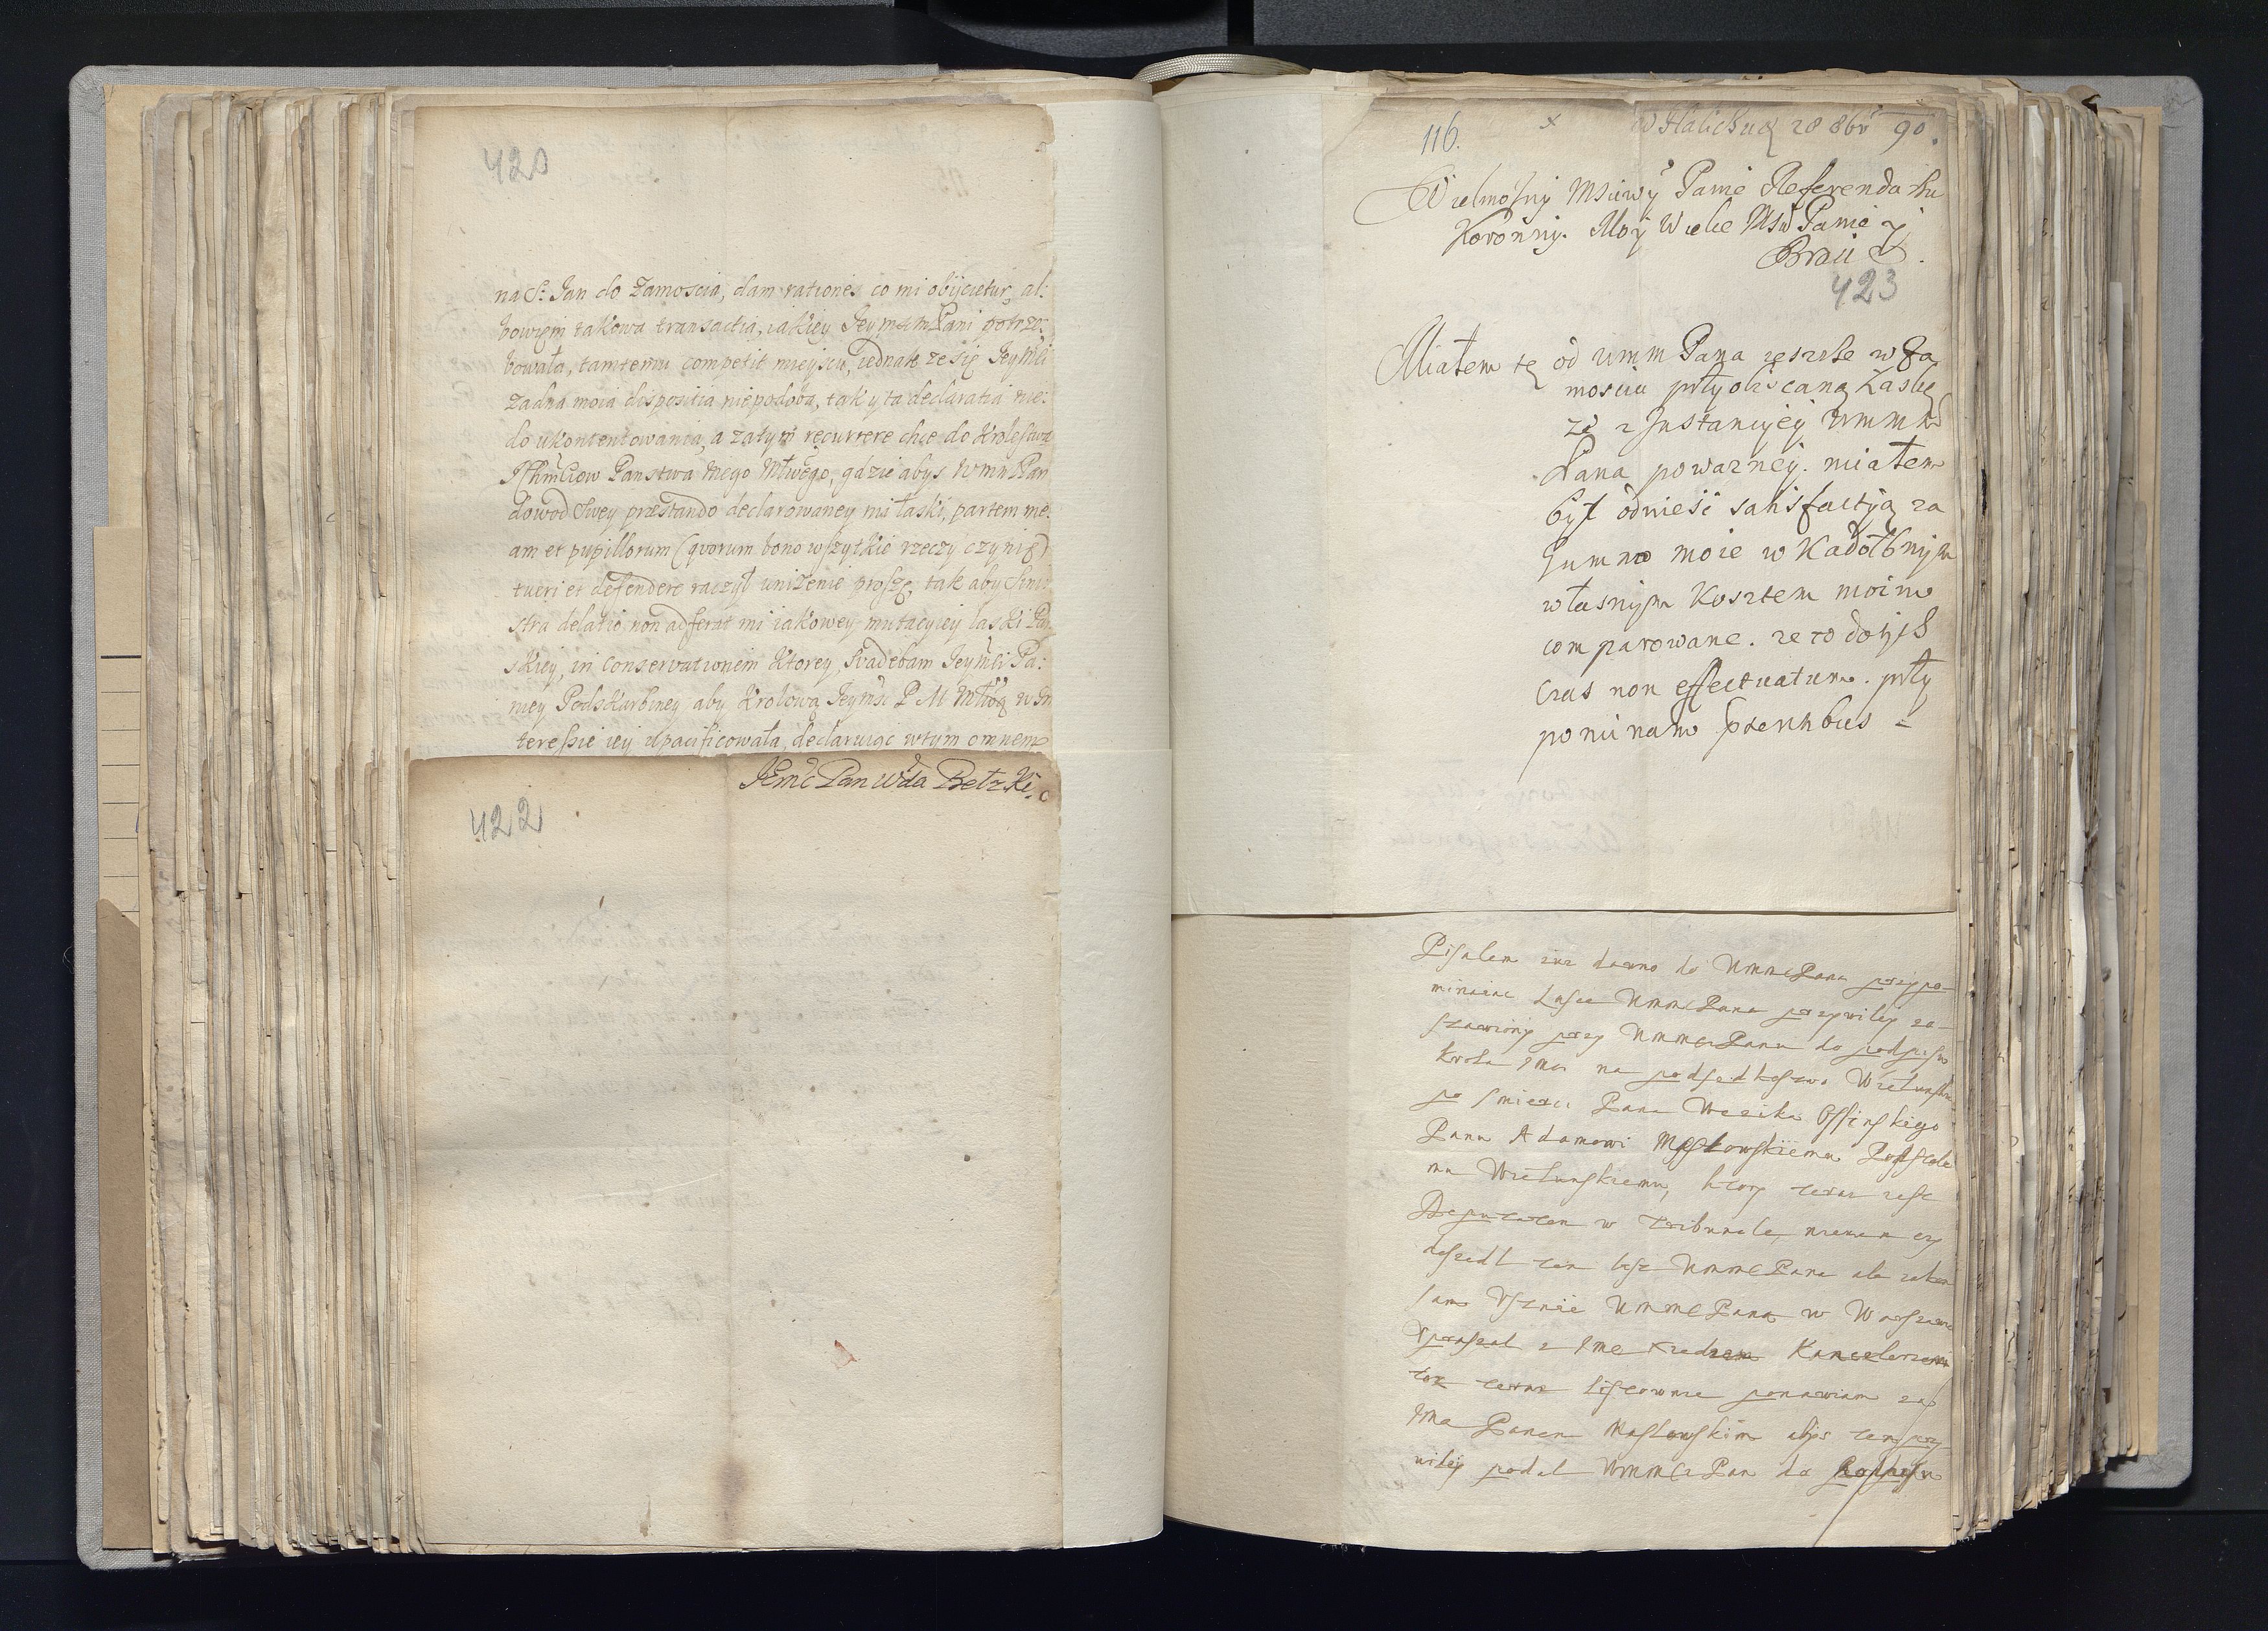 420
na S: Jan do Zamoscia, dam rationes co mi obijcietur, al:
bowiem takowa transactia, iakiey Jeymsci Pani potrze:
bowała, tamtemu competit mieyscu, iednak ze się Jeymsci
zadna moia dispositia niepodoba, tak y ta declaratia nie:
do ukontentowania, a zatym recurrere chce do Krolestwa
Ichmciow Panstwa mego Młwego, gdzie abys WmMPan
dowod swey præstando declarowaney mi łaski, partem me:
am et pupillorum (qvorum bono wszytkie rzeczy czynię)
tueri et defendere raczył uniżenie proszę, tak aby sini
stra delatio non adferat mi iakowey mutacyiey łaski Pan
skiey, in conservationem ktorey, svadebam Jeymsci Pa:
niey Podskarbiney aby Krolową Jeymsci P M Młwą w in
teressie iey upacificowała, declaruiąc w tym omnem
Jemć Pan Wda Bełzki.
422
116. x W Haliczu 28 8br 90.
Wielmożny Msciwy Panie Referendarzu
Koronny. Moy Wielce Msci Panie y
Bracie.
423
Miałem tę od WMM Pana ieszcze w Za
mosciu przyobiecaną Łaskę
ze z Instancyiey WMM
Pana powazney. miałem
był odnieść satisfactią za
gumno moie w Kadołbnym
własnym Kosztem moim
comparowane. ze to dotych
czas non effectuatum. przy
pominam præsentibus =
Pisałem iuz dawno do WMMPana przypo-
minaiąc łasce WMMPana przywiley zo-
stawiony przy WMMPanu do podpisu
Krola Jmci na podsędkostwo Wielunskie
po smierci Pana Wężyka Ossinskiego
Panu Adamowi Masłowskiemu Podstole
mu Wielunskiemu, ktory teraz iest
Deputatem w Tribunale, niewiem czy
doszedł ten list WMMPana ale zatem
sam Ustnie WMMPana w Warszawie
Upraszał z Jmc Xiędzem Kanclerzem
toz teraz listownie ponawiam za
Jmc Panem Masłowskim abys ten przy
wiley podał WMM Pan do Podpisu